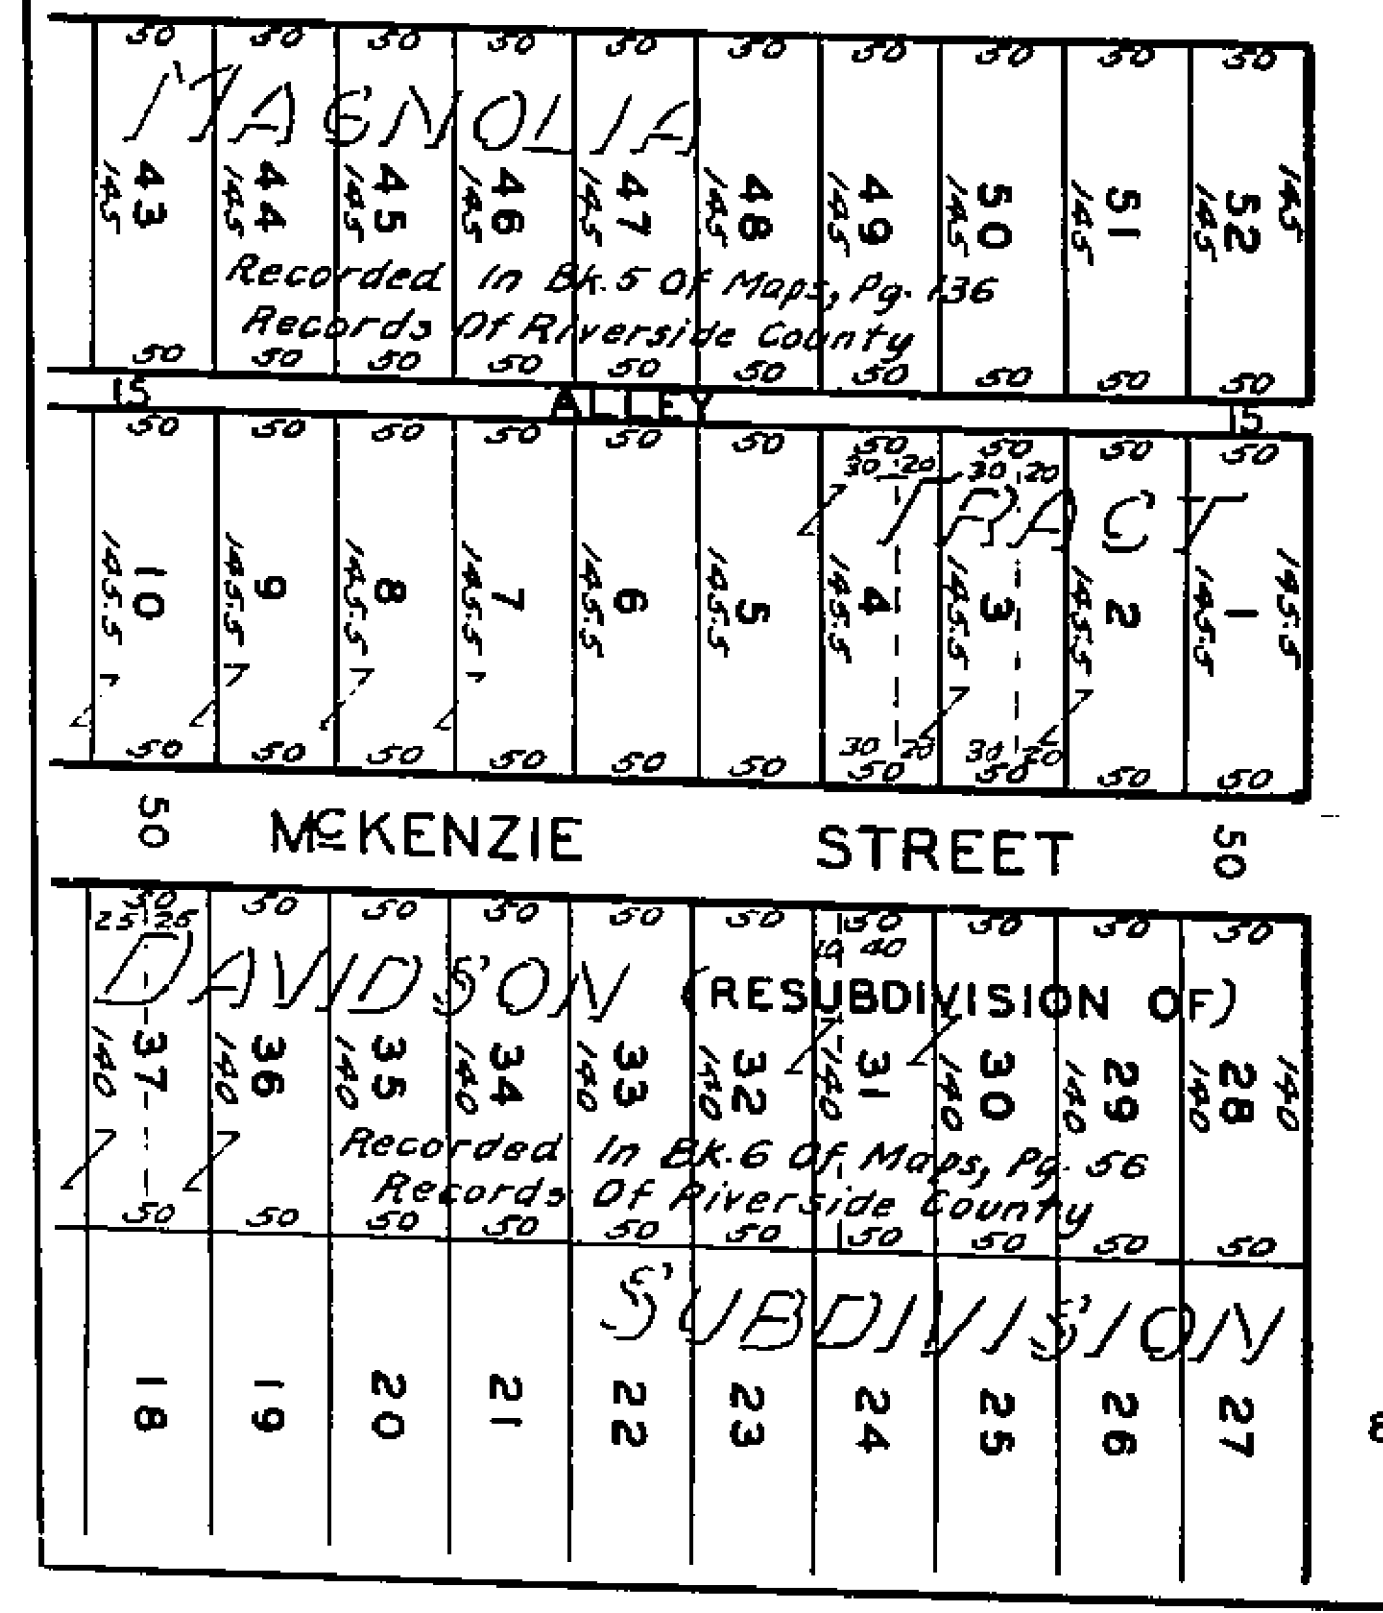 50 50 50 50 50 50 50 50 50 50
MAGNOLIA
43 44 45 46 47 48 49 50 51 52
145 145 145 145 145 145 145 145 145 145 145
Recorded In Bk. 5 Of Maps, Pg. 136
Records Of Riverside County
50 50 50 50 50 50 50 50 50 50
15 ALLEY 15
50 50 50 50 50 50 50 50 50 50
30 20 30 20
TRACT
10 9 8 7 6 5 4 3 2 1
145.5 145.5 145.5 145.5 145.5 145.5 145.5 145.5 145.5 145.5 145.5
30 20 30 20
50 50 50 50 50 50 50 50 50 50
50 McKENZIE STREET 50
50 50 50 50 50 50 50 50 50 50
25 25 10 40
DAVIDSON (RESUBDIVISION OF)
37 36 35 34 33 32 31 30 29 28
140 140 140 140 140 140 140 140 140 140 140
Recorded In Bk. 6 Of Maps, Pg. 56
Records Of Riverside County
50 50 50 50 50 50 50 50 50 50
SUBDIVISION
18 19 20 21 22 23 24 25 26 27